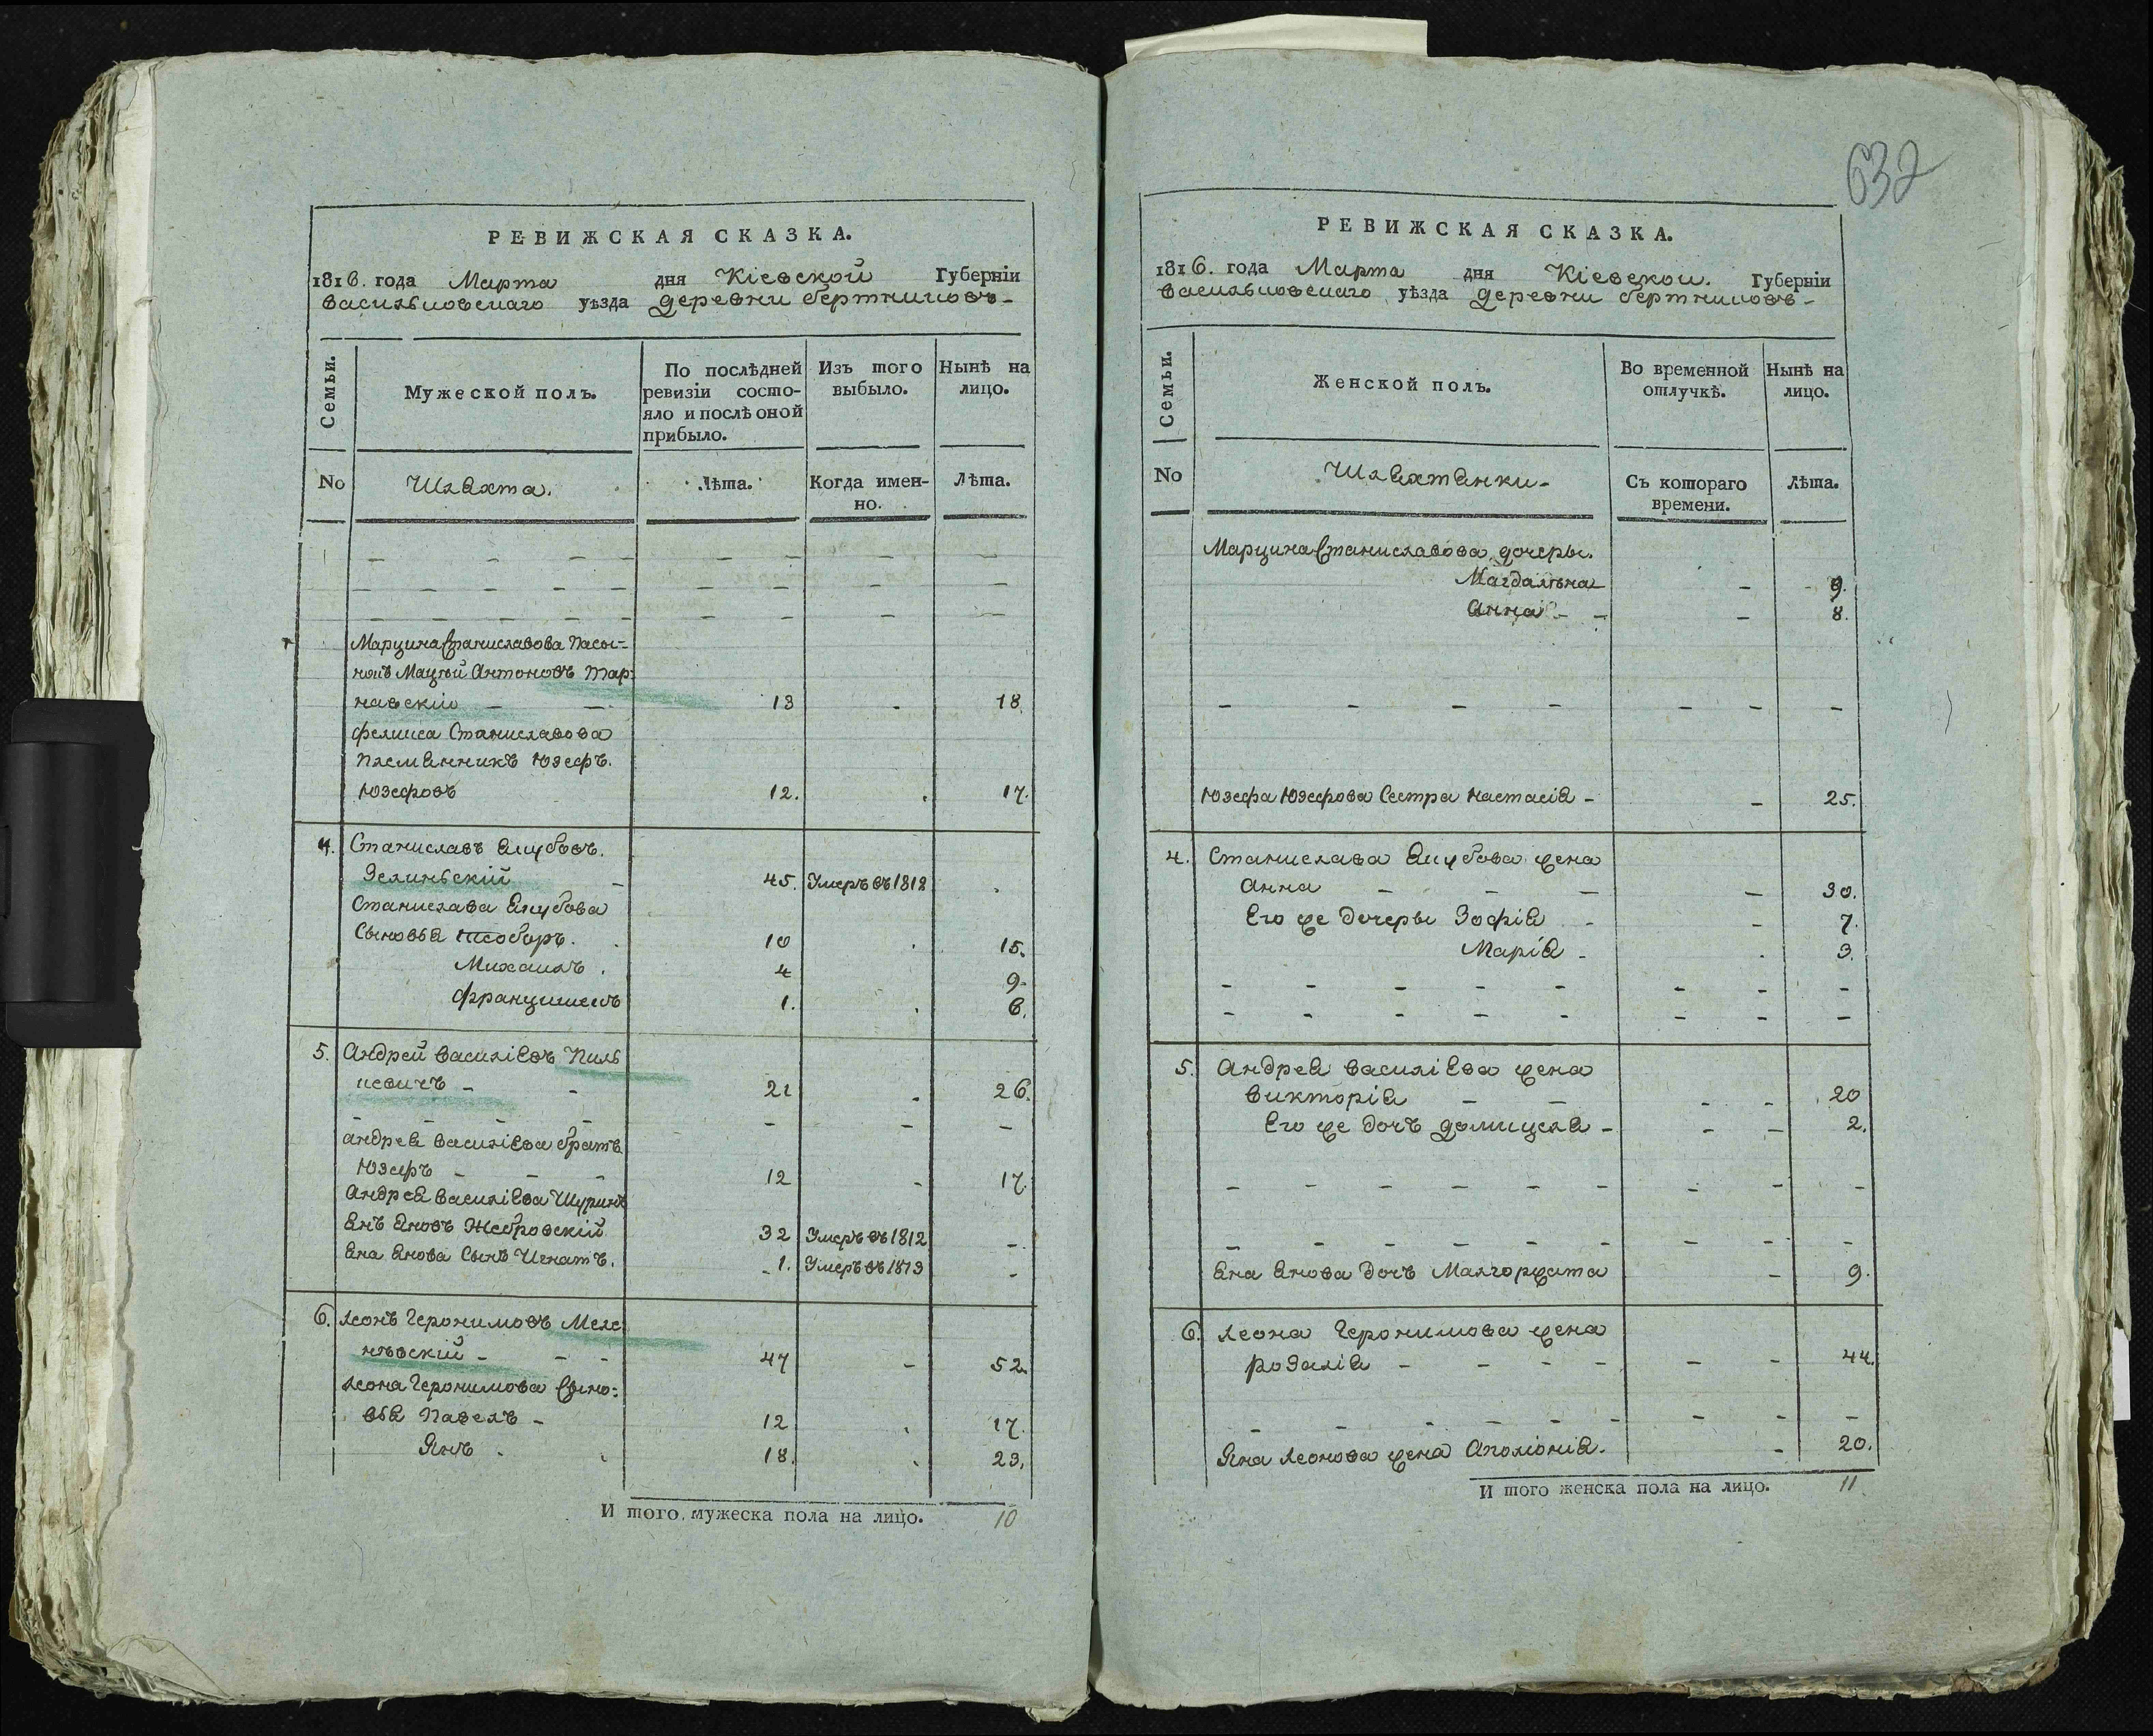 632
РЕВИЖСКАЯ СКАЗКА.
1816. года Марта дня Кіевской Губерніи
васильковскаго уѣзда деревни бертниковъ-
Семьи.
Мужеской полъ.
По послѣдней ревизіи состояло и послѣ оной прибыло.
Изъ того выбыло.
Нынѣ на лицо.
No
Шляхта.
Лѣта.
Когда именно.
Лѣта.
Марцина Станиславова Пасы-
нокъ Мацѣй Антоновъ Тар-
навскій 13 18.
феликса Станиславова
Племянникъ Юзефъ.
Юзефовъ 12. 17.
4. Станиславъ Якубовъ.
Зелиньскій 45. Умеръ въ 1812
Станислава Якубова
Сыновья Теодоръ. 10 15.
Михаилъ. 4 9.
францишекъ 1. 6.
5. Андрей василіевъ Пиль
кевичъ 21 26.
андрея василіева братъ
Юзефъ 12 17.
Андрея василіева Шуринъ
Янъ Яновъ Жебровскій 32 Умеръ въ 1812
Яна Янова Сынъ Игнатъ. 1. Умеръ въ 1813
6. леонъ Геронимовъ Меле
нѣвскій 47 52.
леона Геронимова Сыно-
вья Павелъ 12 17.
Янъ 18. 23.
И того мужеска пола на лицо. 10
РЕВИЖСКАЯ СКАЗКА.
1816. года Марта дня Кіевской. Губерніи
васильковскаго уѣзда деревни бертниковъ-
Семьи.
Женской полъ.
Во временной отлучкѣ.
Нынѣ на лицо.
No
Шляхтянки-
Съ котораго времени.
Лѣта.
Марцина Станиславова дочеры.
Магдалѣна 9.
Анна 8.
Юзефа Юзефова Сестра Настасія 25.
4. Станислава Якубова жена
Анна 30.
Его же Дочеры Зофія 7.
Марія 3.
5. Андрея василіева жена
викторія 20
Его же дочъ домицеля 2.
Яна Янова дочъ Малгоржата 9.
6. леона Геронимова жена
розалія 44.
Яна леонова жена Аполіонія. 20.
И того женска пола на лицо. 11